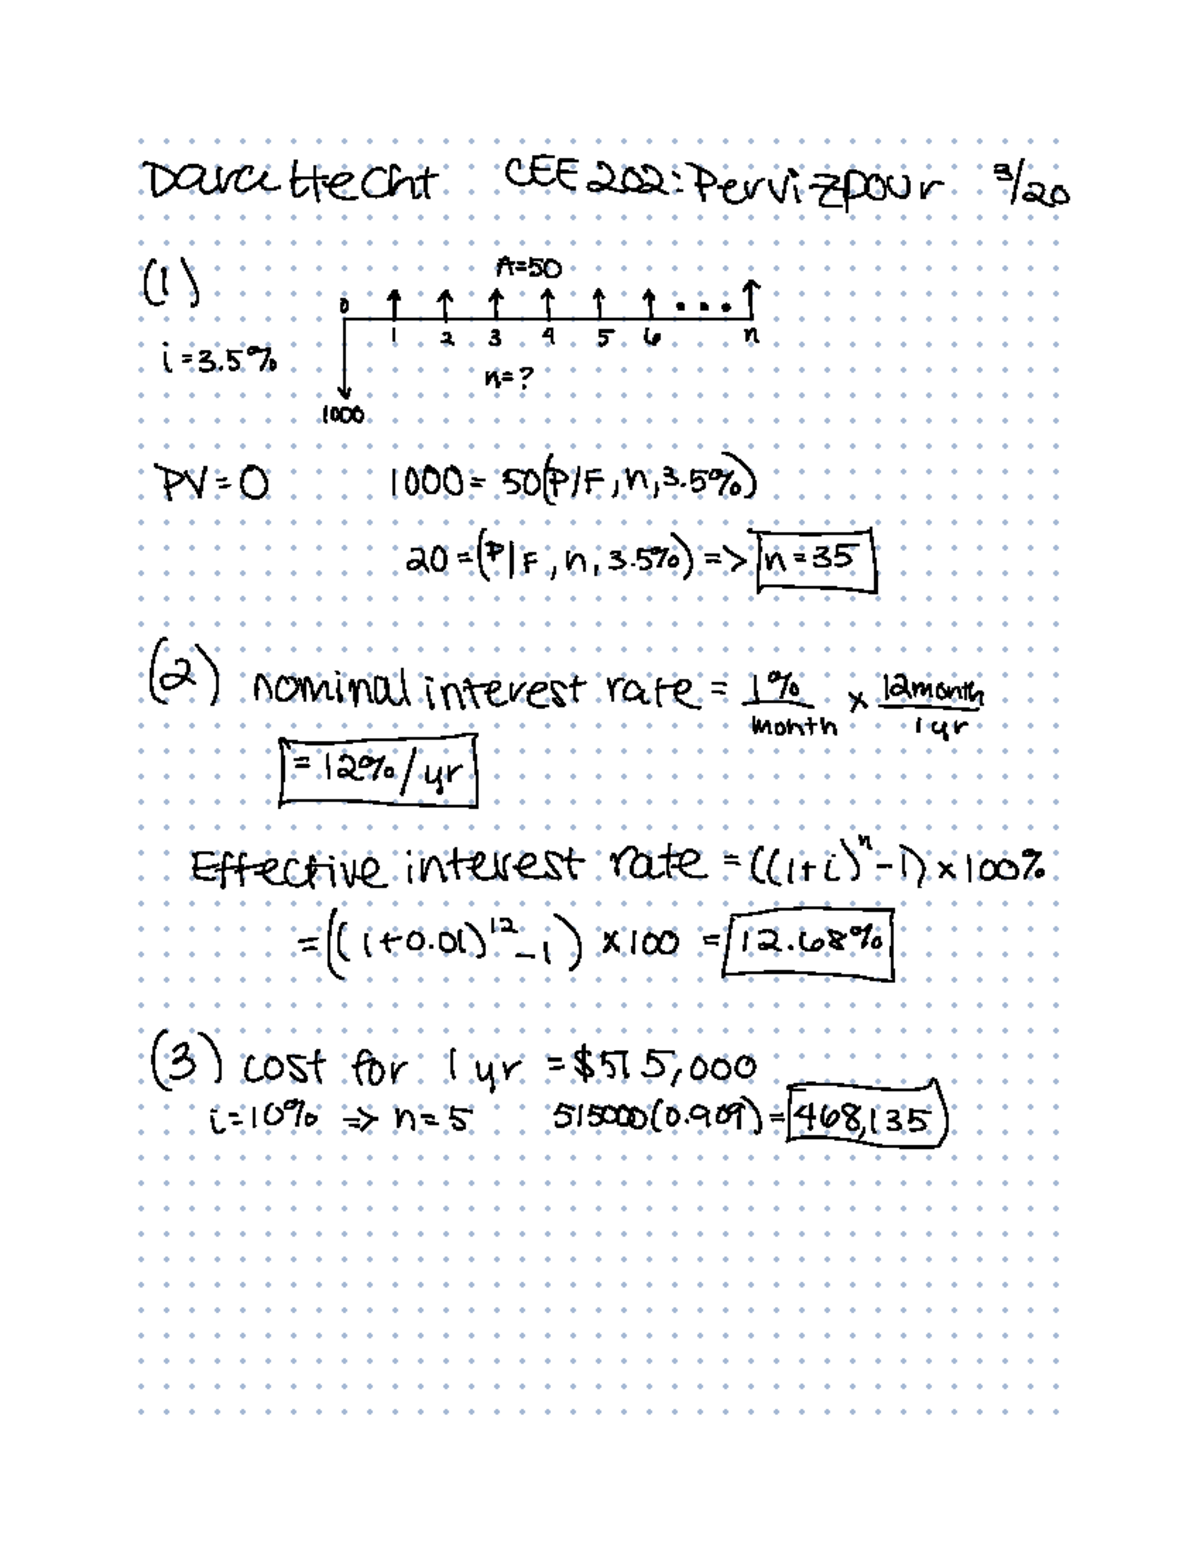 Dara Hecht CEE 202: Pervizpour 3/20
(1)
A=50
0
1 2 3 4 5 6 ... n
i=3.5%
n=?
1000
PV=0 1000= 50(P/F,n,3.5%)
20=(P/F,n,3.5%) => n=35
(2) nominal interest rate = 1%/month × 12month/1yr
= 12%/yr
Effective interest rate = ((1+i)^n-1) × 100%
= ((1+0.01)^12-1) × 100 = 12.68%
(3) cost for 1 yr = $515,000
i=10% => n=5 515000(0.909)= 468,135